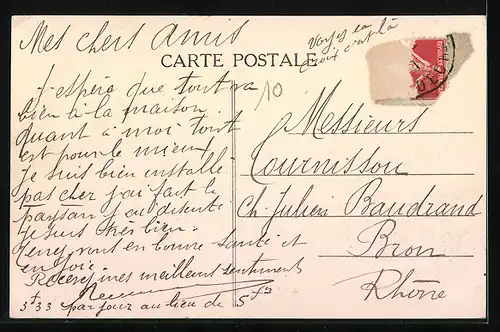 Mes chers Amis
Voyez la
croix c'est là
CARTE POSTALE
10
J'espère que tout va
bien à la maison
quant à moi tout
est pour le mieux
Je suis bien installé
pas cher j'ai fait le
paysan j'ai
Je suis très bien.
vont en bonne santé et
en joie
Recevez mes meilleurs sentiments
3f33 par jour au lieu de 5f
Messieurs
Tournissou
Ch. Julien Baudrand
Bron
Rhône